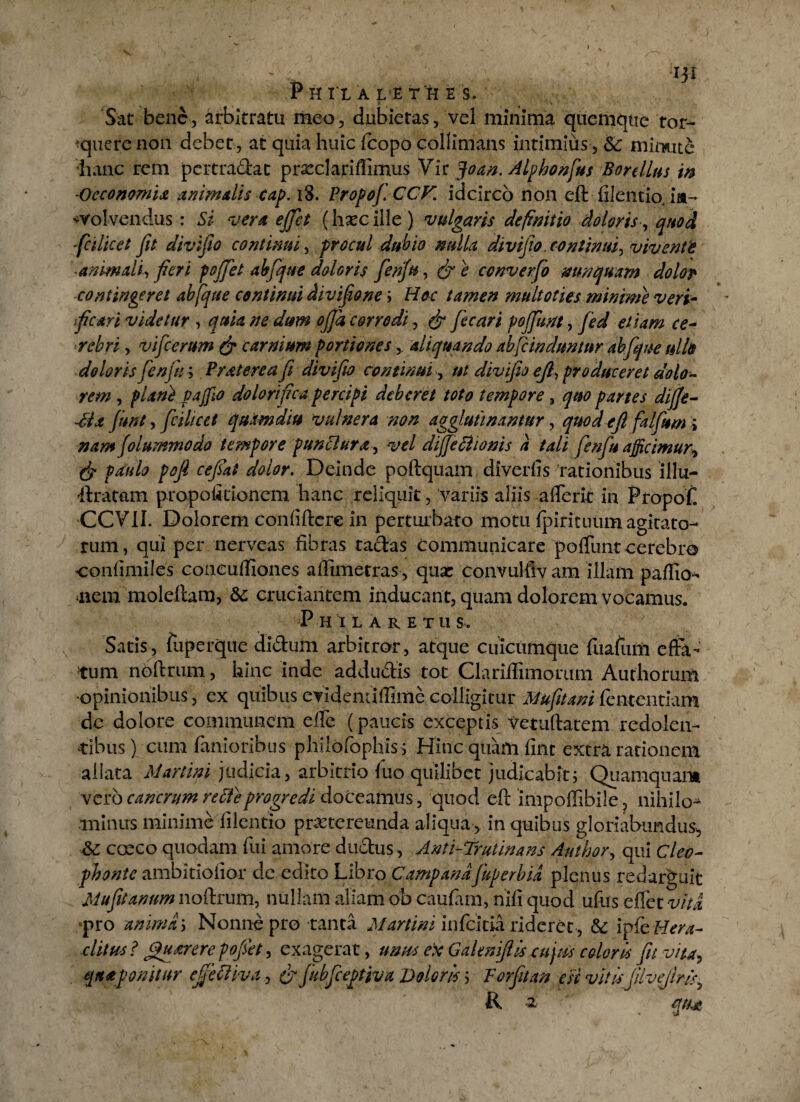 131
PHILALETHES.
Sat bene, arbitratu meo, dubietas, vel minima quemque tor-
quere non debet, at quia huic ſcopo collimans intimiùs, & minutè
hanc rem pertractat præclariſſimus Vir Joan. Alphonſus Borellus in
Occonomiæ animalis cap. 18. Propoſ. CCV. idcircò non eſt ſilentio in-
volvendus: Si vera eſſet (hæc ille) vulgaris definitio doloris, quod
ſcilicet ſit diviſio continui, procul dubio nulla diviſio continui, vivente
animali, fieri poſſet abſque doloris ſenſu, & è converſo nunquam dolor
contingeret abſque continui diviſione; Hoc tamen multoties minimè veri-
ficari videtur, quia ne dum oſſa corrodi, & ſecari poſſunt, ſed etiam ce-
rebri, viſcerum & carnium portiones, aliquando abſcinduntur abſque ullo
doloris ſenſu; Præterea ſi diviſio continui, ut diviſio eſt, produceret dolo-
rem, planè paſſio dolorifica percipi deberet toto tempore, quo partes diſſe-
ctæ ſunt, ſcilicet quamdiu vulnera non agglutinantur, quod eſt falſum;
nam ſolummodo tempore puncturæ, vel diſſectionis à tali ſenſu afficimur,
& paulo poſt ceſſat dolor. Deinde poſtquam diverſis rationibus illu-
ſtratam propoſitionem hanc reliquit, variis aliis aſſerit in Propoſ.
CCVII. Dolorem conſiſtere in perturbato motu ſpirituum agitato-
rum, qui per nerveas fibras tactas communicare poſſunt cerebro
conſimiles concuſſiones aſſimetras, quæ convulſivam illam paſſio-
nem moleſtam, & cruciantem inducant, quam dolorem vocamus.
PHILARETUS.
Satis, ſuperque dictum arbitror, atque cuicumque ſuaſum effa-
tum noſtrum, hinc inde adductis tot Clariſſimorum Authorum
opinionibus, ex quibus evidentiſſimè colligitur Muſitani ſententiam
de dolore communem eſſe (paucis exceptis vetuſtatem redolen-
tibus) cum ſanioribus philoſophis; Hinc quàm ſint extrà rationem
allata Martini judicia, arbitrio ſuo quilibet judicabit; Quamquam
verò cancrum rectè progredi doceamus, quod eſt impoſſibile, nihilo-
minus minimè ſilentio prætereunda aliqua, in quibus gloriabundus,
& cœco quodam ſui amore ductus, Anti-Trutinans Author, qui Cleo-
phonte ambitioſior de edito Libro Campanâ ſuperbiâ plenus redarguit
Muſitanum noſtrum, nullam aliam ob cauſam, niſi quod uſus eſſet vitâ
pro animâ; Nonnè pro tantâ Martini inſcitiâ rideret, & ipſe Hera-
clitus? Quærere poſſet, exagerat, unus ex Galeniſtis cujus coloris ſit vita,
quæ ponitur effectiva, & ſubſceptiva Doloris; Forſitan eſt vitis ſilveſtris,
R 2 quæ